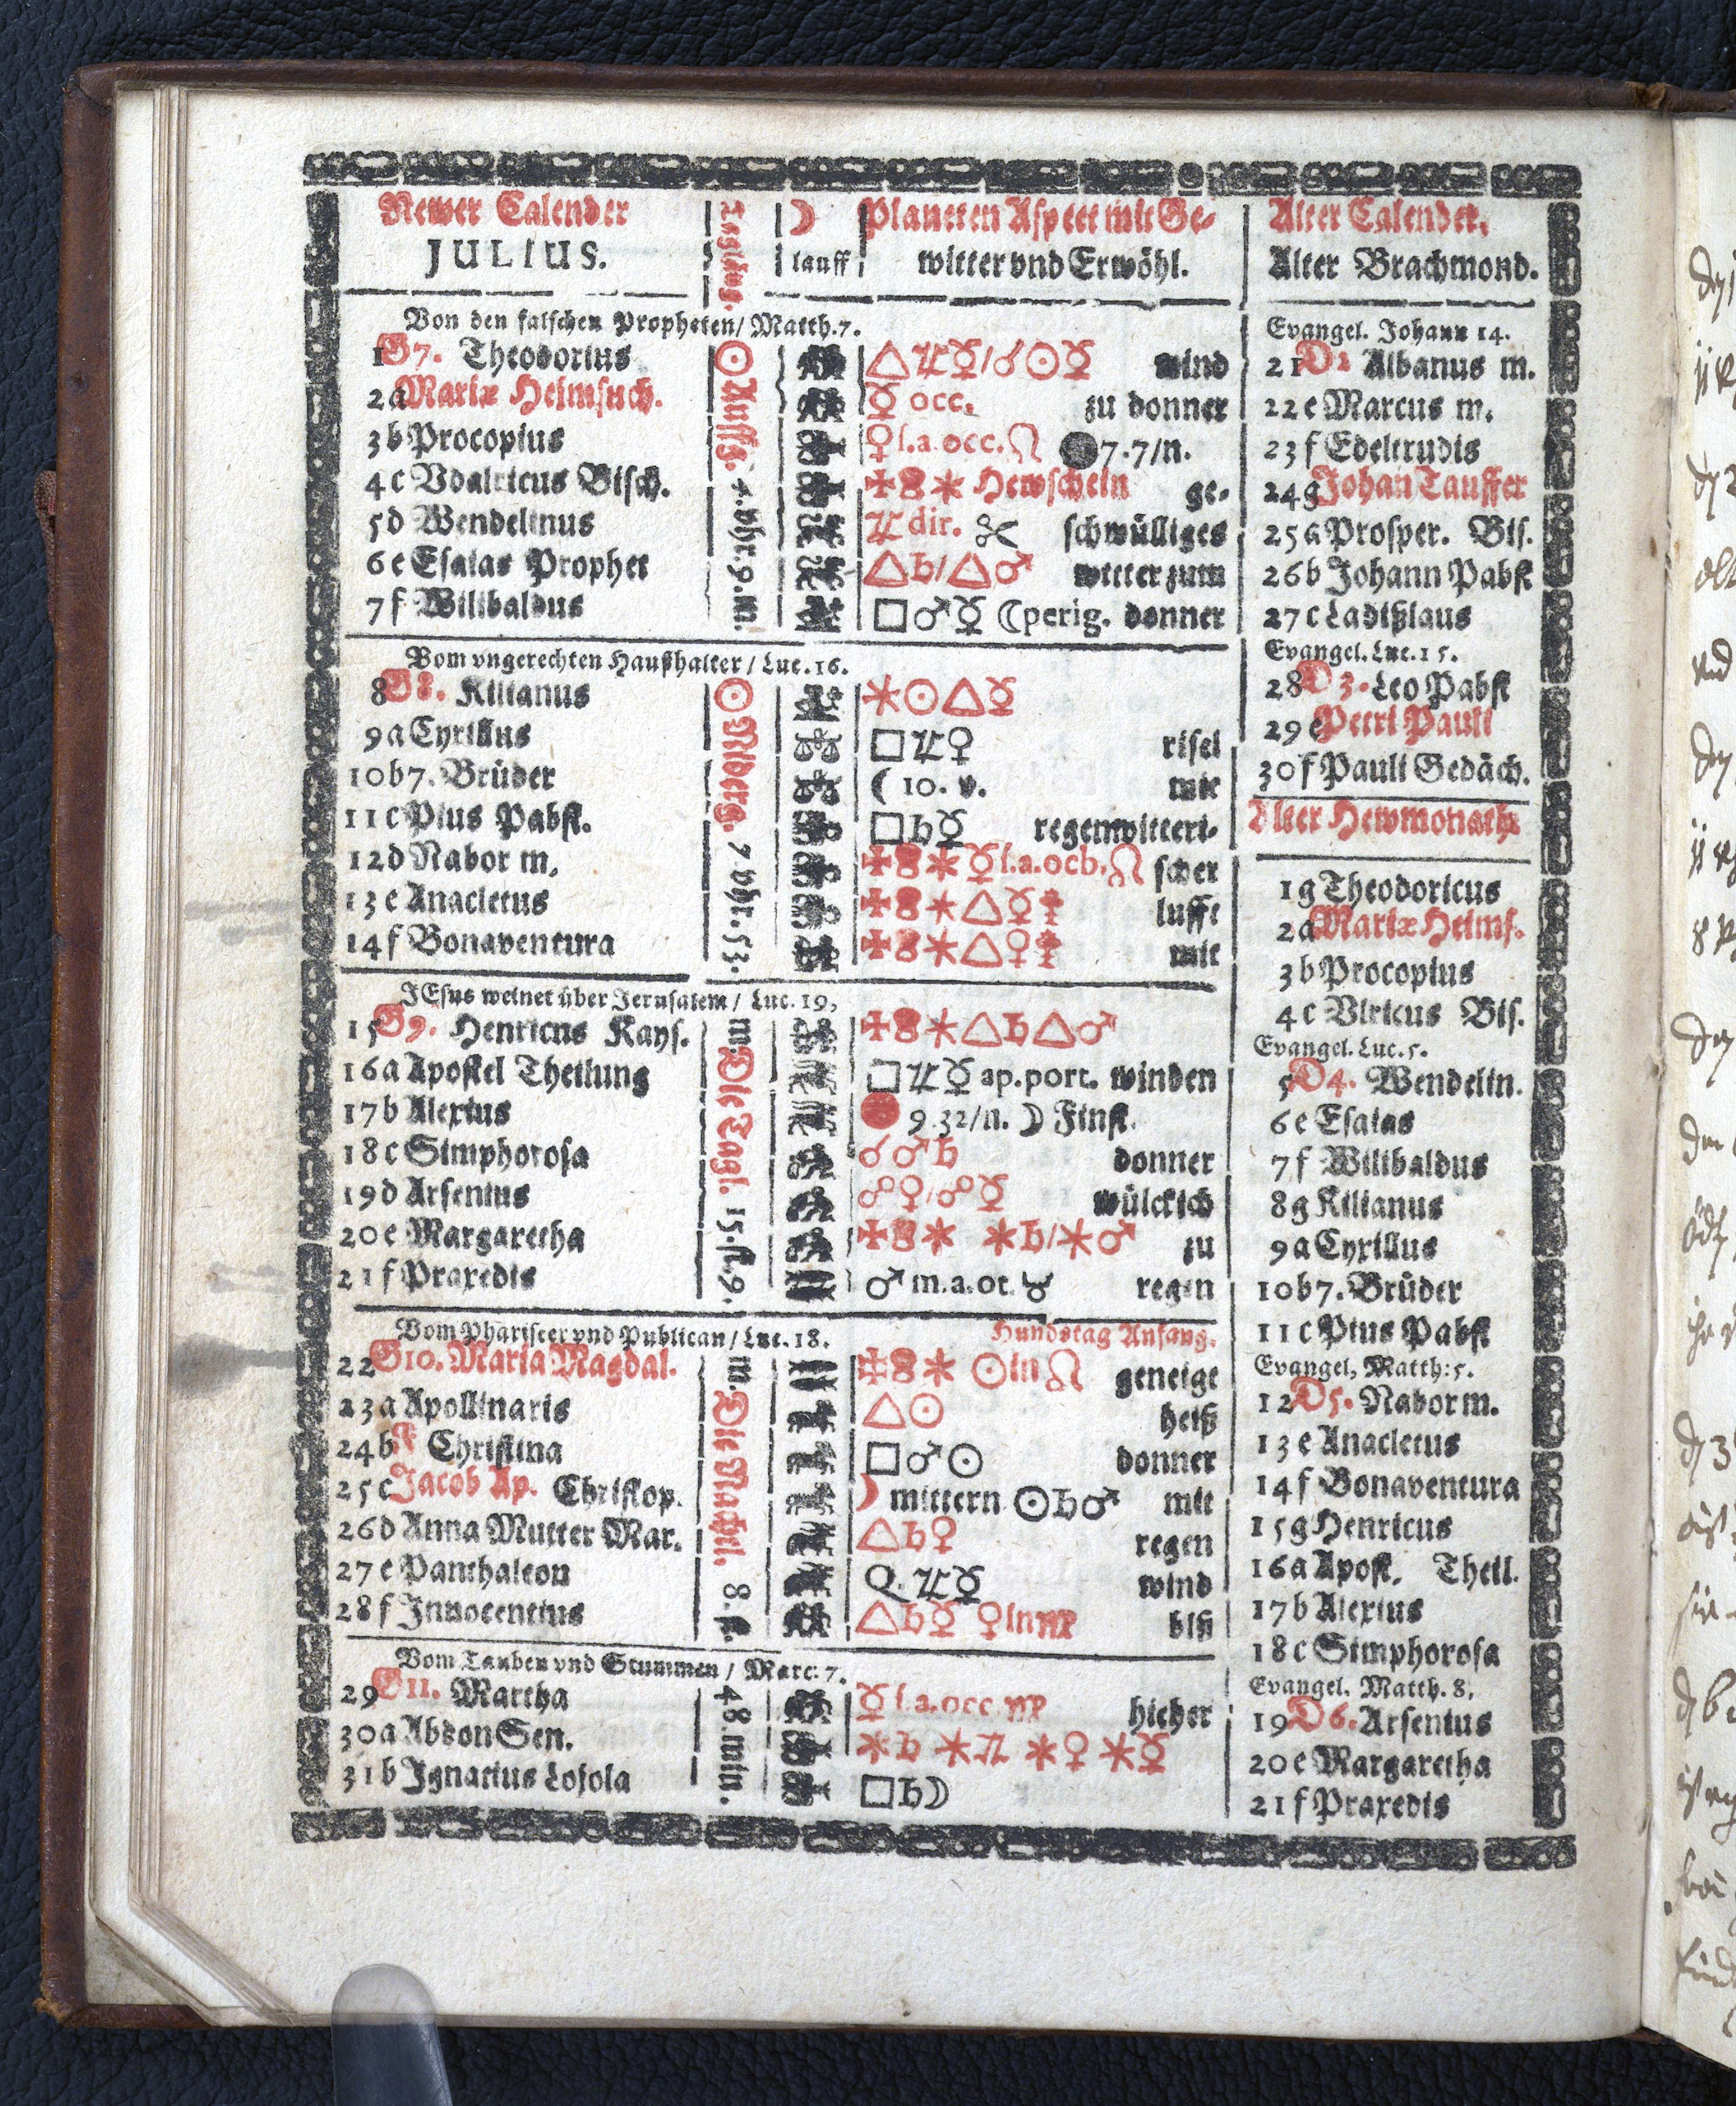 Newer Calender
JULIUS.
Taglång.
☽
lauff
Planeten Aspect mit Ge-
witter vnd Erwöhl.
Alter Calender.
Alter Brachmond.
Von den falschen Propheten / Matth. 7.
1 G 7. Theodorius
2 a Mariæ Heimsuch.
3 b Procopius
4 c Vdalricus Bisch.
5 d Wendelinus
6 e Esaias Prophet
7 f Wilibaldus
☉ Auffg. 4. vhr. 9. m.
△♃☿/☌☉☿ wind
☿ occ. zu donner
♀ l.a. occ. ♌ ● 7.7/n.
✠ ✱ Hewschein ge-
♃ dir. schwülliges
△♄/△♂ witter zum
□♂☿ ☾perig. donner
Vom vngerechten Haußhalter / Luc. 16.
8 G 8. Kilianus
9 a Cyrillus
10 b 7. Brüder
11 c Pius Pabst.
12 d Nabor m.
13 e Anacletus
14 f Bonaventura
☉ Niderg. 7. vhr. 53.
✱☉△☿
□♃♀ risel
☾ 10. v. mit
□♄☿ regenwitteri-
✠ ✱☿ l.a. ocb. ♌ scher
✠ ✱△☿ lufft
✠ ✱△♀ mit
JEsus weinet über Jerusalem / Luc. 19,
15 G 9. Henricus Kays.
16 a Apostel Theilung
17 b Alexius
18 c Simphorosa
19 d Arsenius
20 e Margaretha
21 f Praxedis
m. Die Tagl. 15. st. 9.
✠ ✱△♄△♂
□♃☿ ap. port. winden
● 9.32/n. ☽ Finst.
☌♂♄ donner
☍♀/☍☿ wülckich
✠ ✱ ✱♄/✱♂ zu
♂ m.a. or. ♉ regen
Vom Phariseer vnd Publican / Luc. 18.
Hundstag Anfang.
22 G 10. Maria Magdal.
23 a Apollinaris
24 b F Christina
25 c Jacob Ap. Christop.
26 d Anna Mutter Mar.
27 e Panthaleon
28 f Innocentius
m. Die Nachtl. 8. st.
✠ ✱ ☉ in ♌ geneigt
△☉ heiß
□♂☉ donner
☽ mittern ☉♄♂ mit
△♄♀ regen
Q. ♃☿ wind
△♄☿ ♀ in ♍ biß
Vom Tauben vnd Stummen / Marc. 7.
29 G 11. Martha
30 a Abdon Sen.
31 b Ignatius Lojola
48. min.
☿ l.a. occ. ♍ hieher
✱♄ ✱♃ ✱♀ ✱☿
□♄☽
Evangel. Johann 14.
21 D 2 Albanus m.
22 e Marcus m.
23 f Edeltrudis
24 g Johan Tauffer
25 a Prosper. Bis.
26 b Johann Pabst
27 c Ladißlaus
Evangel. Luc. 15.
28 D 3. Leo Pabst
29 e Petri Pauli
30 f Pauli Gedäch.
Alter Hewmonath
1 g Theodoricus
2 a Mariæ Heims.
3 b Procopius
4 c Vlricus Bis.
Evangel. Luc. 5.
5 D 4. Wendelin.
6 e Esaias
7 f Wilibaldus
8 g Kilianus
9 a Cyrillus
10 b 7. Brüder
11 c Pius Pabst
Evangel. Matth: 5.
12 D 5. Nabor m.
13 e Anacletus
14 f Bonaventura
15 g Henricus
16 a Apost. Theil.
17 b Alexius
18 c Simphorosa
Evangel. Matth. 8.
19 D 6. Arsenius
20 e Margaretha
21 f Praxedis